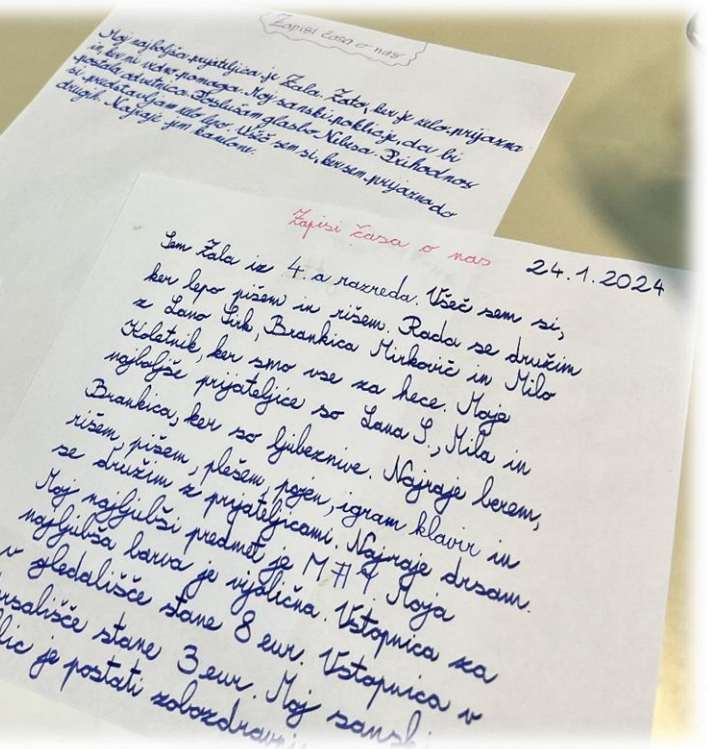 Zapisi časa o nas
Moj najboljša prijateljica je Zala. Zato, ker je zelo prijazna
in, ker mi vedno pomaga. Moj sanski poklic je, da bi
postala odvetnica. Poslušam glasbo Nibesa. Prihodnos
si predstavljam zelo lepo. Všeč sem si, ker sem prijazna do
drugih. Najraje jem
Zapisi časa o nas
24.1.2024
Sem Zala iz 4. a razreda. Všeč sem si,
ker lepo pišem in rišem. Rada se družim
z Lano Sirk, Brankica Mirkovič in Milo
Koletnik, ker smo vse za hece. Moje
najboljše prijateljice so Lana S., Mila in
Brankica, ker so ljubeznive. Najraje berem,
rišem, pišem, plešem, pojen, igram klavir in
se družim z prijateljicami. Najraje drsam.
Moj najljubši predmet je MAT. Moja
najljubša barva je vijolična. Vstopnica za
v gledališče stane 8 eur. Vstopnica v
rsališče stane 3 eur. Moj sanski
lic je postati zobozdravni